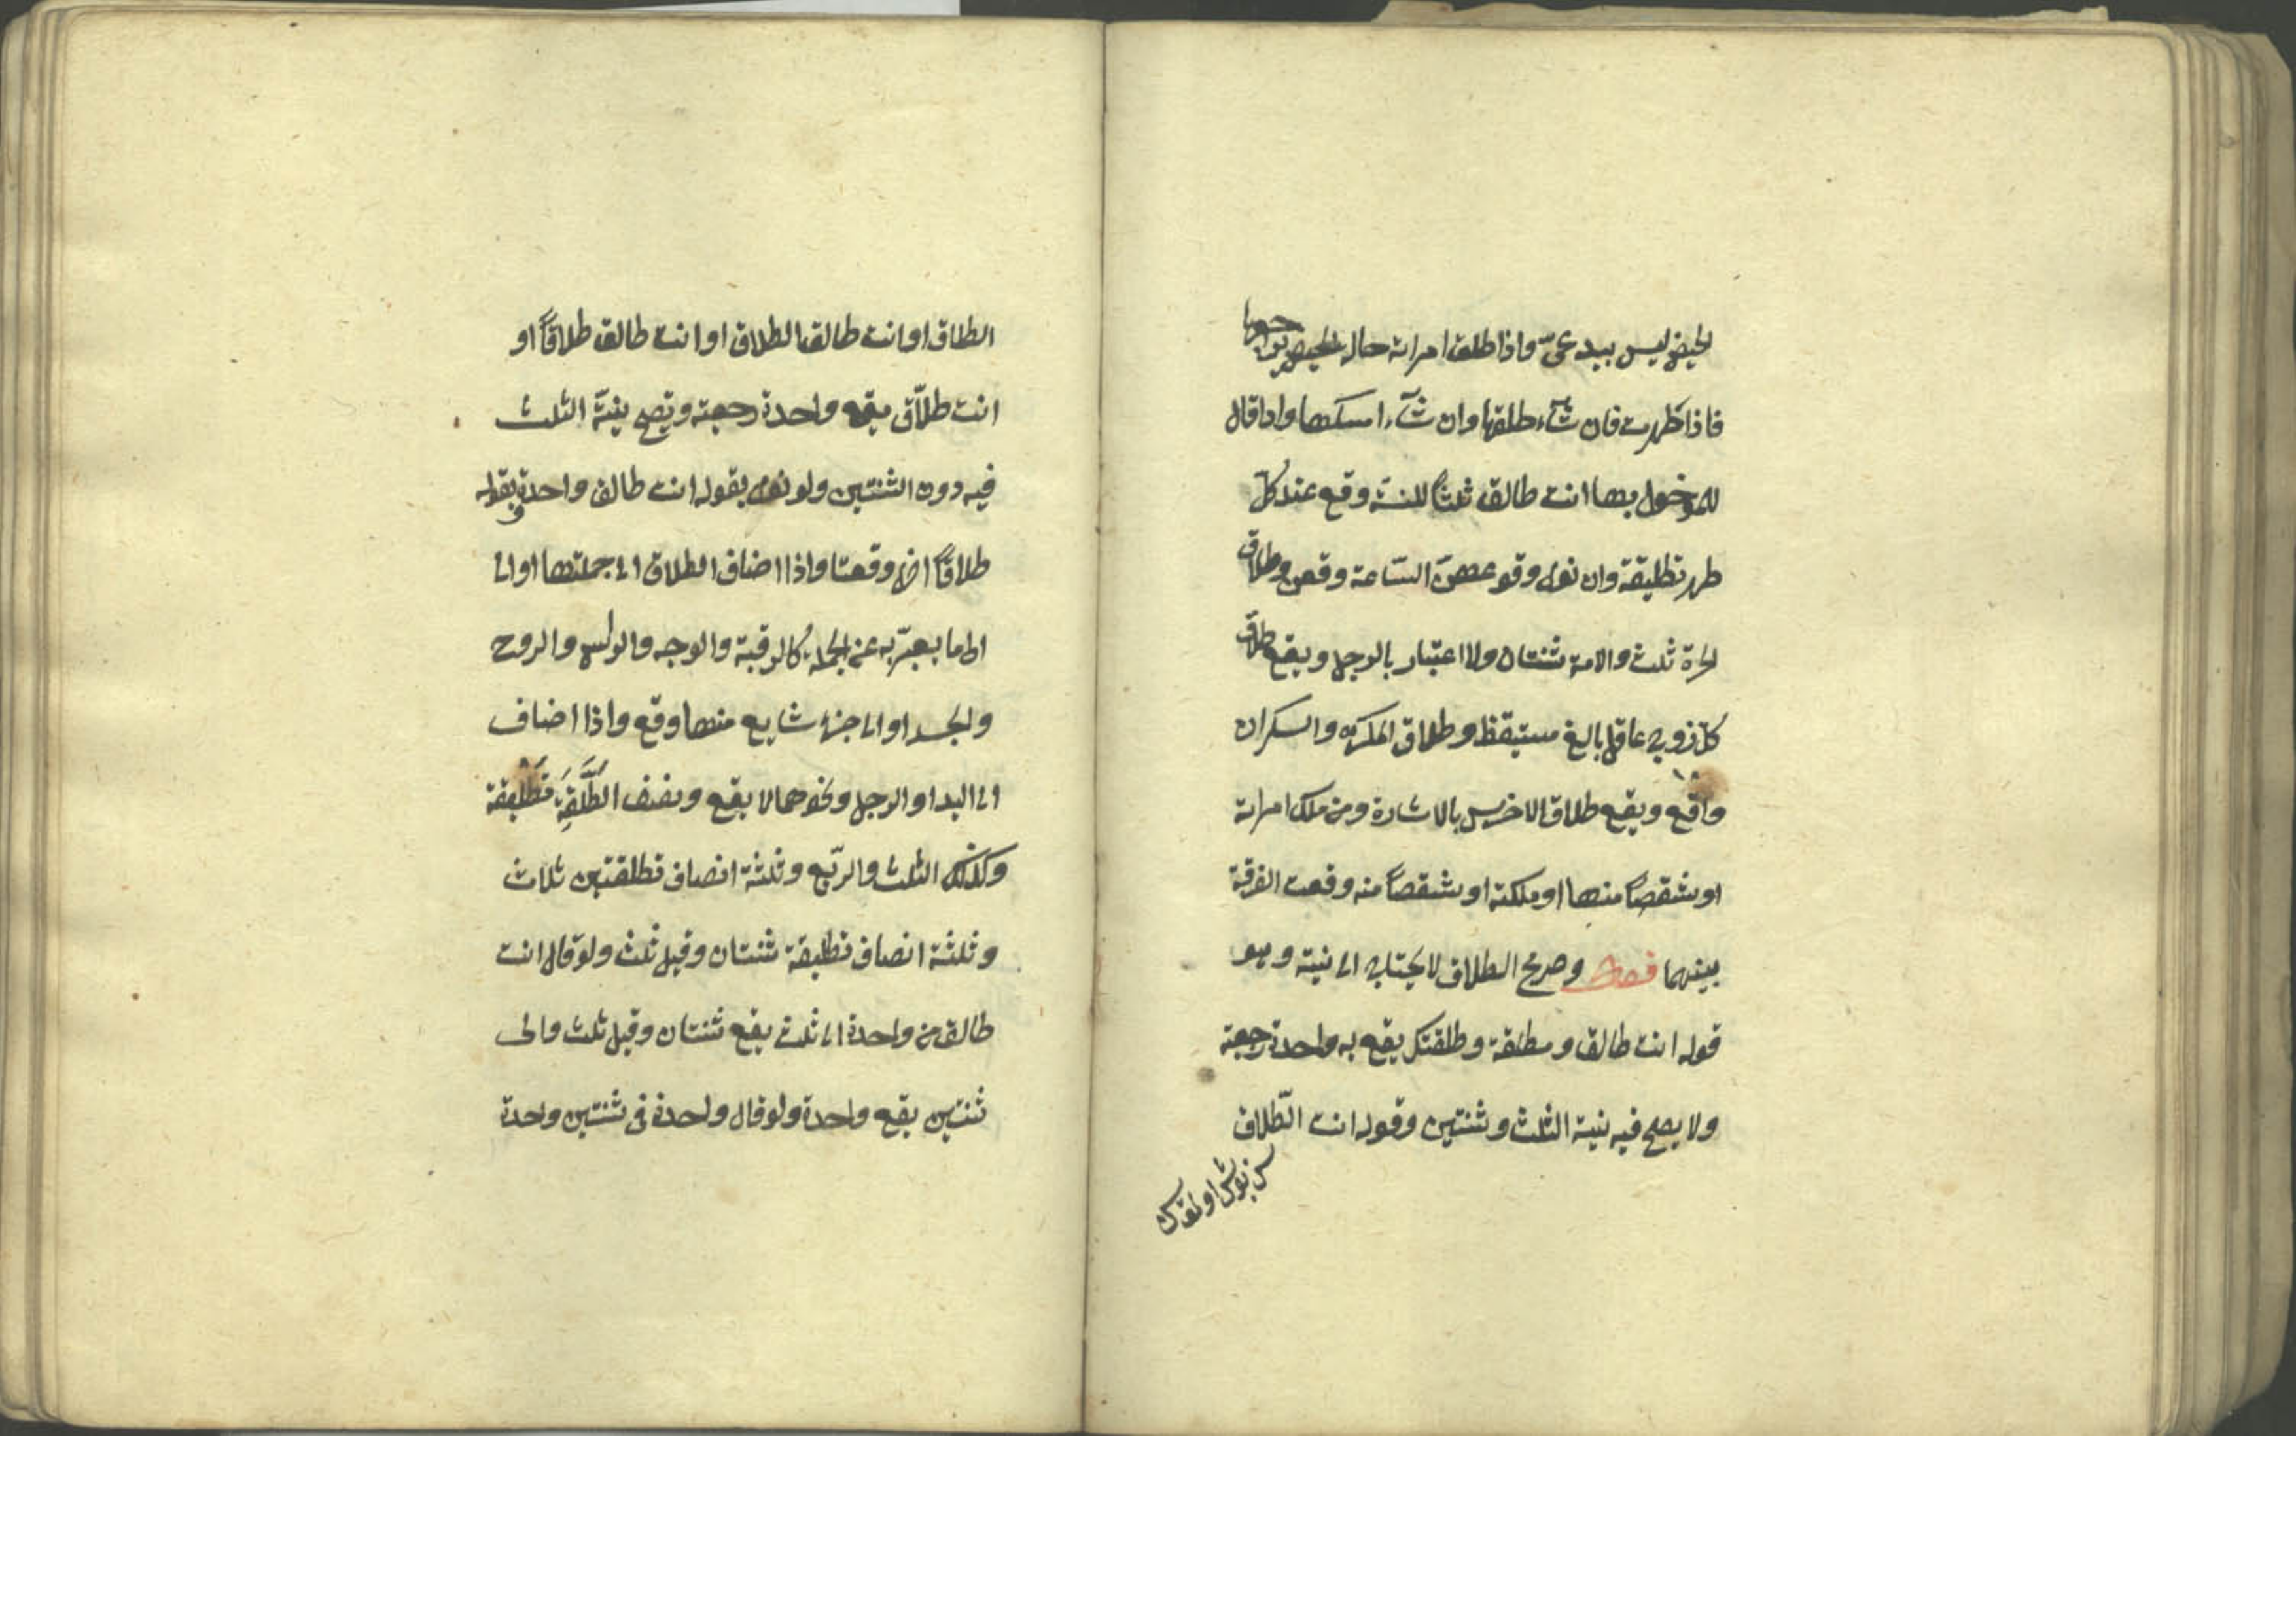 الحيض ليس ببدعىّ واذا طلق امراته حالة الحيض يراجعها
فاذا طهرت فان شآء طلقها وان شآء امسكها واذا قال
للمدخول بها انت طالق ثلثاً للسنة وقع عند كلّ
طهر تطليقة وان نوى وقوعهنّ السّاعة وقعن وطلاق
الحرّة ثلث والامة ثنتان ولا اعتبار بالرجل ويقع طلاق
كلّ زوج عاقل بالغ مستيقظ وطلاق المكرَه والسكران
واقع ويقع طلاق الاخرس بالاشارة ومن ملك امراته
او شقصاً منها او ملكته او شقصاً منه وقعت الفرقة
بينهما فصل وصريح الطلاق لا يحتاج الى نية وهو
قوله انت طالق ومطلقة وطلقتك يقع به واحدة رجعية
ولا يصح فيه نية الثلث وثنتين وقوله انت الطّلاق
الطلاق او انت طالق الطلاق او انت طالق طلاقاً او
انت طلاّق يقع واحدة رجعية وتصح نيّة الثلث
فيه دون الثنتين ولو نوى بقوله انت طالق واحدة وبقوله
طلاقاً اخرى وقعتا واذا اضاف الطلاق الى جملتها او الى
الى ما يعبّر به عن الجملة كالرقبة والوجه والراس والروح
والجسد او الى جزء شايع منها وقع واذا اضاف
الى اليد او الرجل ونحوهما لا يقع ونصف الطَّلقَةِ تَطْليقة
وكذلك الثلث والربّع وثلثة انصاف تطلقتين ثلاث
وثلثة انصاف تطليقة ثنتان وقيل ثلث ولو قال انت
طالق من واحدة الى ثلث يقع ثنتان وقيل ثلث والى
ثنتين يقع واحدة ولو قال واحدة فى ثنتين وحدة